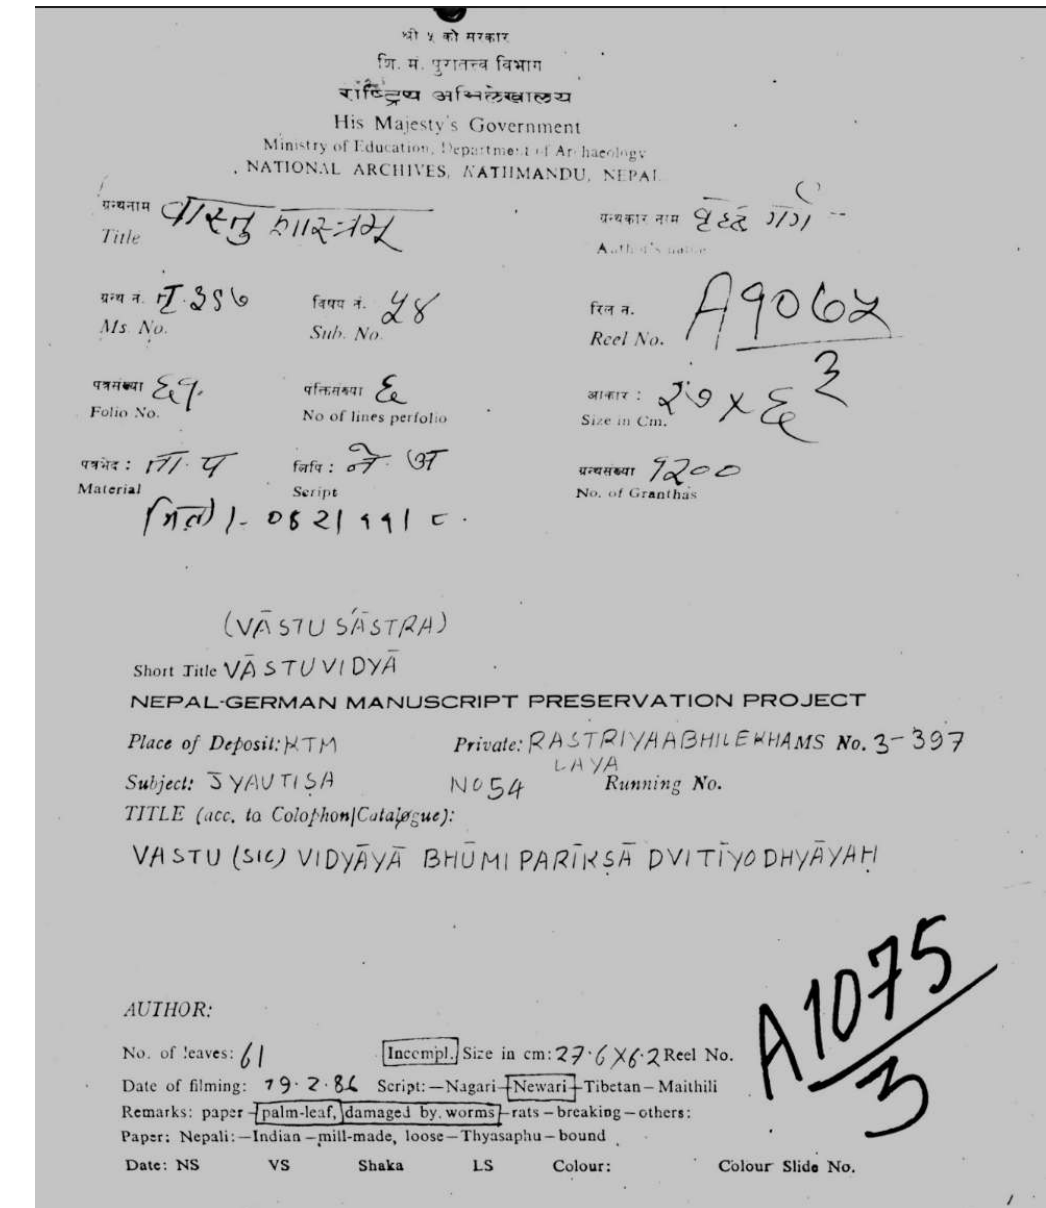 श्री ५ को सरकार
शि. मं. पुरातत्त्व विभाग
राष्ट्रिय अभिलेखालय
His Majesty's Government
Ministry of Education, Department of Archaeology
NATIONAL ARCHIVES, KATHMANDU, NEPAL
ग्रन्थनाम वास्तु शास्त्रम् ग्रन्थकार नाम बृहद गर्ग
Title Author's name
ग्रन्थ नं. तृ. ३९७ विषय नं. ५४ रिल नं. A १०७५
Ms. No. Sub. No. Reel No. ३
पत्रसंख्या ६१. पंक्तिसंख्या ६ आकार : २७ x ६
Folio No. No of lines perfolio Size in Cm.
पत्रभेद : ता. प लिपि : ने. अ ग्रन्थसंख्या १२००
Material Script No. of Granthas
(VĀSTU ŚĀSTRA)
Short Title VĀSTUVIDYĀ
NEPAL-GERMAN MANUSCRIPT PRESERVATION PROJECT
Place of Deposit: KTM Private: RASTRIYAABHILEKHA MS No. 3-397
LAYA
Subject: JYAUTIṢA No 54 Running No.
TITLE (acc. to Colophon/Catalogue):
VASTU (SIC) VIDYĀYĀ BHŪMI PARĪKṢĀ DVITĪYODHYĀYAḤ
A1075
3
AUTHOR:
No. of leaves: 61 Incompl. Size in cm: 27.6 X 6.2 Reel No.
Date of filming: 19.2.86 Script: – Nagari – Newari – Tibetan – Maithili
Remarks: paper – palm-leaf, damaged by. worms – rats – breaking – others:
Paper: Nepali: – Indian – mill-made, loose – Thyasaphu – bound
Date: NS VS Shaka LS Colour: Colour Slide No.